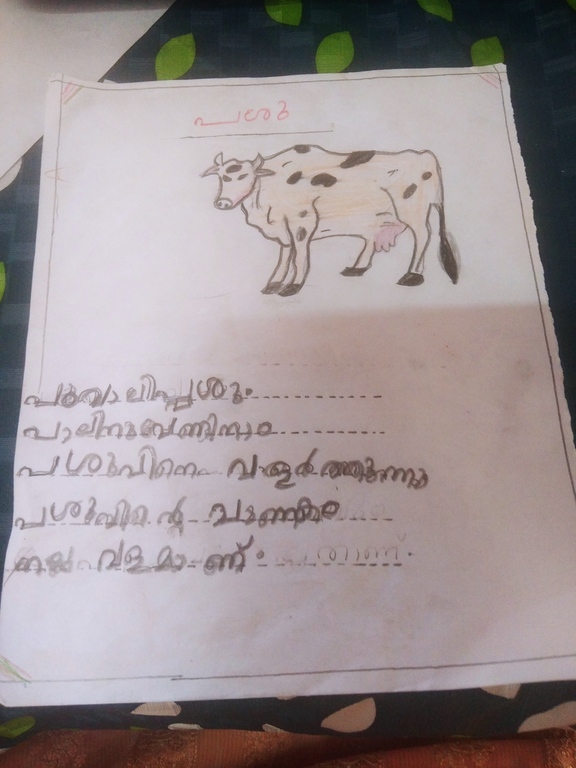 പശു
പൂവാലിപ്പശു.
പാലിനുവേണ്ടിനാം
പശുവിനെ വളർത്തുന്നു
പശുവിൻ്റെ ചാണകം
നല്ല വളമാണ്.